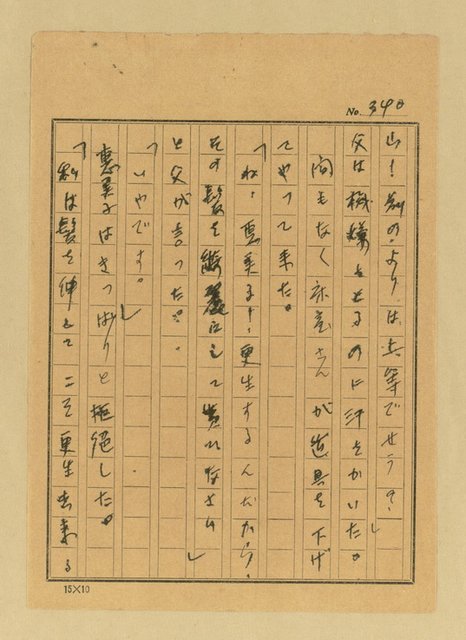 No. 340
山！前のよりは上等でせう？」
父は機嫌をとるのに汗をかいた。
間もなく床屋さんが道具を下げ
てやって来た。
「ね、恵美子！更生するんだから、
その髪を綺麗にして貰いなさい」
と父が言った。
「いやです。」
恵美子はきつぱりと拒絶した。
「私は髪を伸してこそ更生出来る
15×10